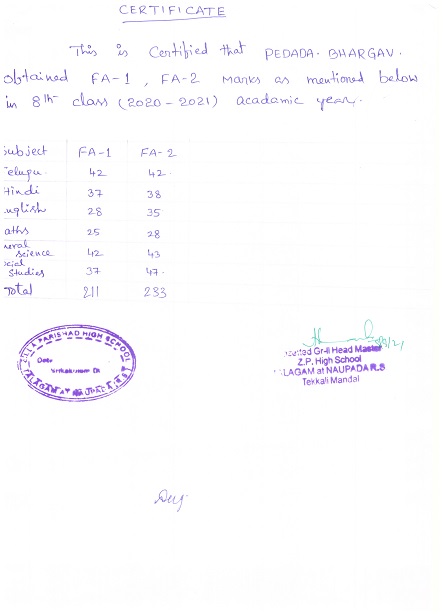 CERTIFICATE
This is Certified that PEDADA. BHARGAV.
obtained FA-1, FA-2 Marks as mentioned below
in 8th class (2020-2021) acadamic year.
subject FA-1 FA-2
Telugu. 42 42.
Hindi 37 38
nglish 28 35
aths 25 28
neral science 42 43
ocial studies 37 47.
Total 211 233
ZILLA PARISHAD HIGH SCHOOL
Date
Srikakulam Dt
Gr-II Head Master
Z.P. High School
LAGAM at NAUPADA R.S
Tekkali Mandal